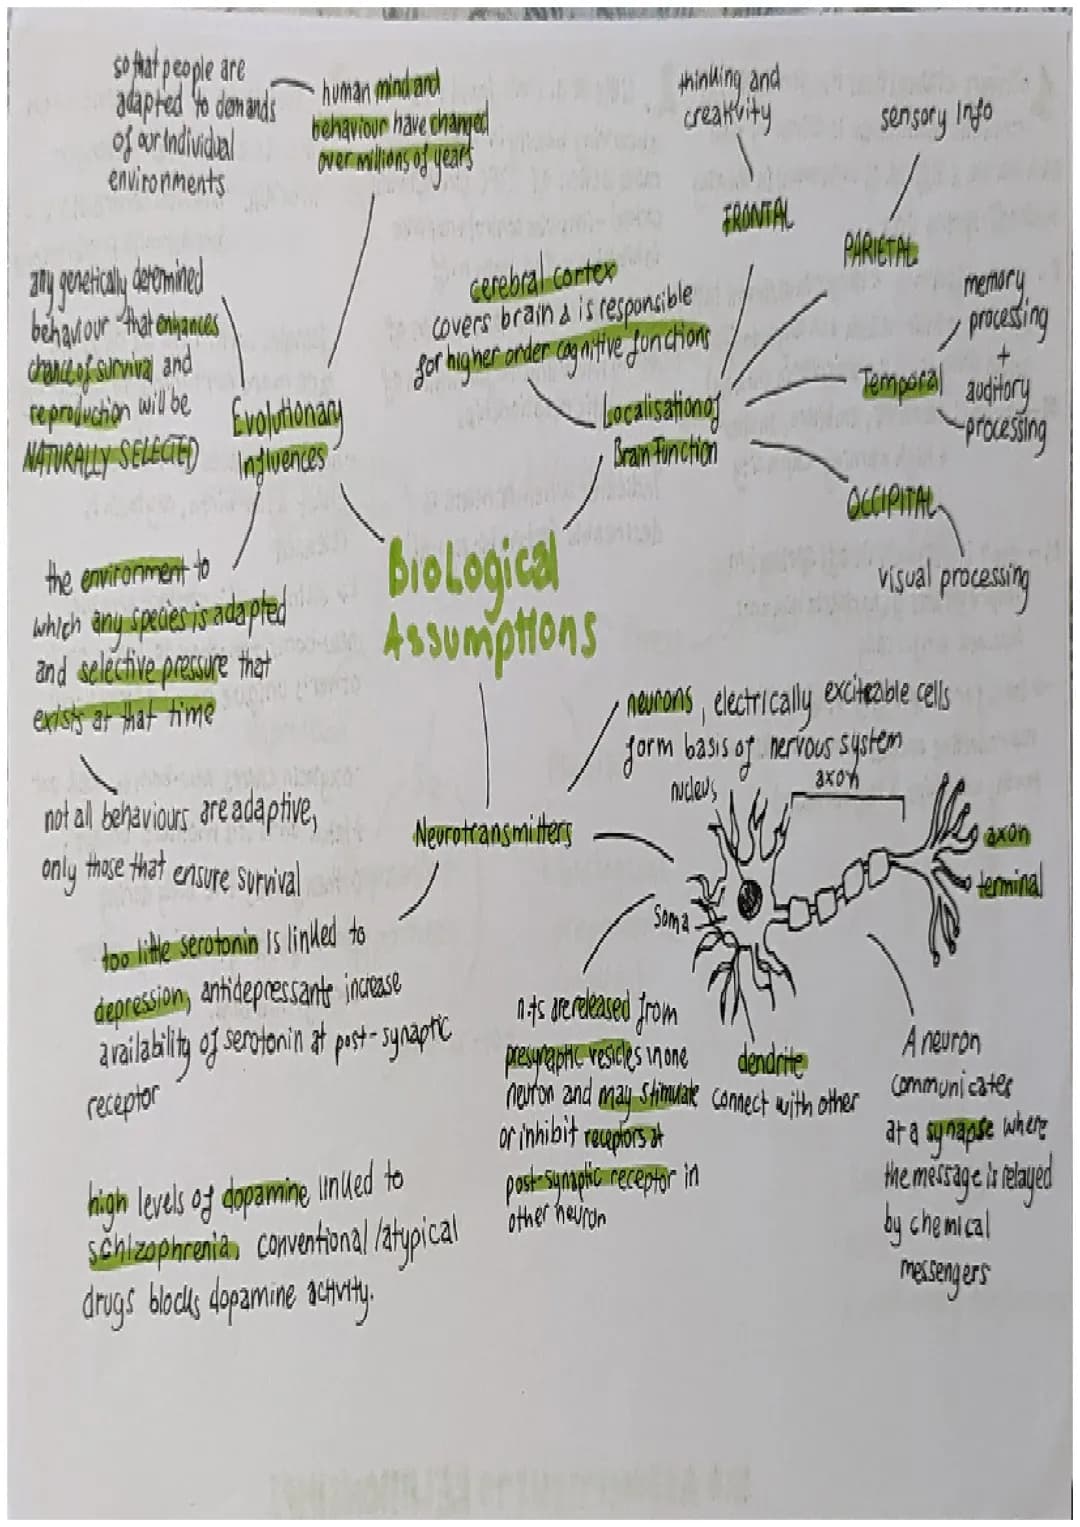 so that people are
adapted to demands
of our individual
environments
human mind and
behaviour have changed
over millions of years
any genetically determined
behaviour that enhances
chance of survival and
reproduction will be
NATURALLY SELECTED
Evolutionary
Influences
the environment to
which any species is adapted
and selective pressure that
exists at that time
not all behaviours are adaptive,
only those that ensure survival
thinking and
creativity
FRONTAL
sensory Info
PARIETAL
cerebral cortex
covers brain & is responsible
for higher order cognitive functions
Localisation of
Brain Function
memory
processing
+
auditory
processing
Temporal
OCCIPITAL
visual processing
Biological
Assumptions
Neurotransmitters
neurons, electrically exciteable cells
form basis of nervous system
nucleus
axon
axon
terminal
Soma
dendrite
connect with other
too little serotonin is linked to
depression, antidepressants increase
availability of serotonin at post-synaptic
receptor
high levels of dopamine linked to
schizophrenia, conventional/atypical
drugs blocks dopamine activity.
n.ts are released from
presynaptic vesicles in one
neuron and may stimulate
or inhibit receptors at
post-synaptic receptor in
other neuron
A neuron
communicates
at a synapse where
the message is relayed
by chemical
messengers